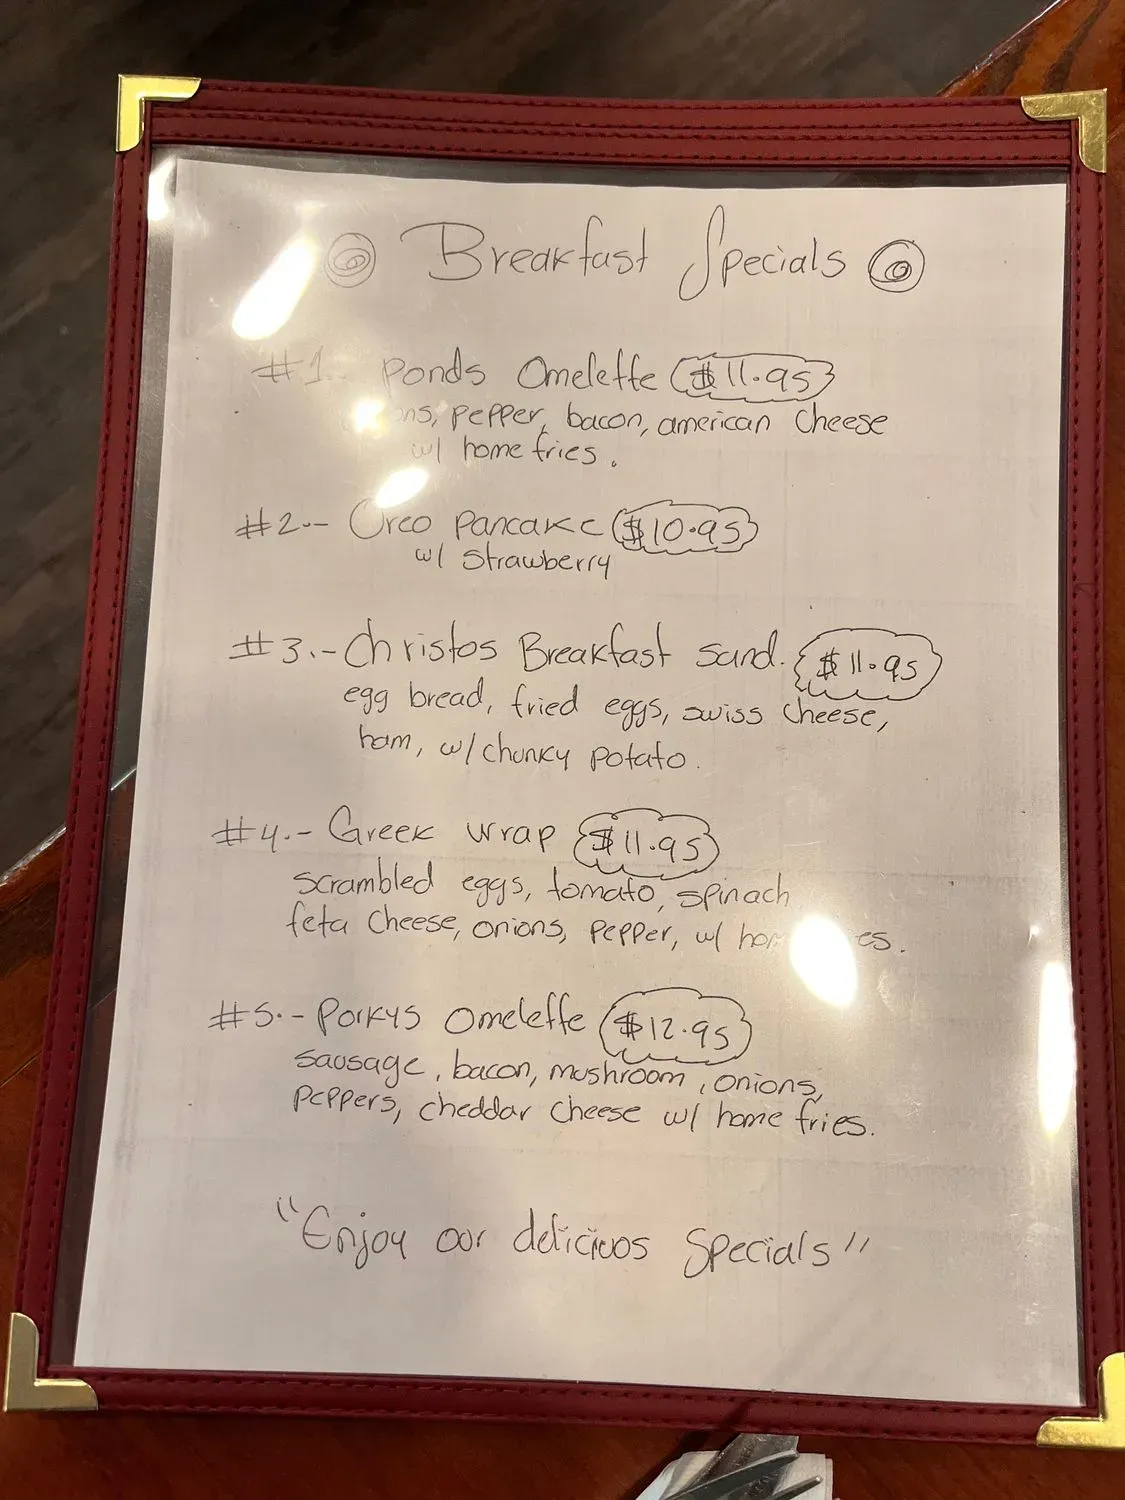 Breakfast Specials
#1.- Ponds Omelette $11.95
pepper, bacon, american cheese
w/ home fries.
#2.- Oreo Pancake $10.95
w/ strawberry
#3.- Christos Breakfast sand. $11.95
egg bread, fried eggs, swiss cheese,
ham, w/ chunky potato.
#4.- Greek wrap $11.95
scrambled eggs, tomato, spinach
feta cheese, onions, pepper, w/
#5.- Porkys Omelette $12.95
sausage, bacon, mushroom, onions,
peppers, cheddar cheese w/ home fries.
"Enjoy our delicious Specials"